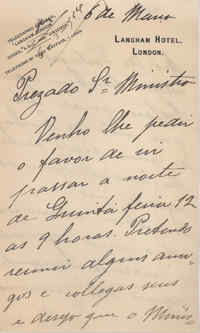 6 de Março
LANGHAM HOTEL,
LONDON.
Prezado Sr. Ministro
Venho lhe pedir
o favor de vir
passar a noite
de Quinta feira 12
as 9 horas. Pretendo
reunir alguns ami-
gos e collegas seus
e desejo que o Minis-